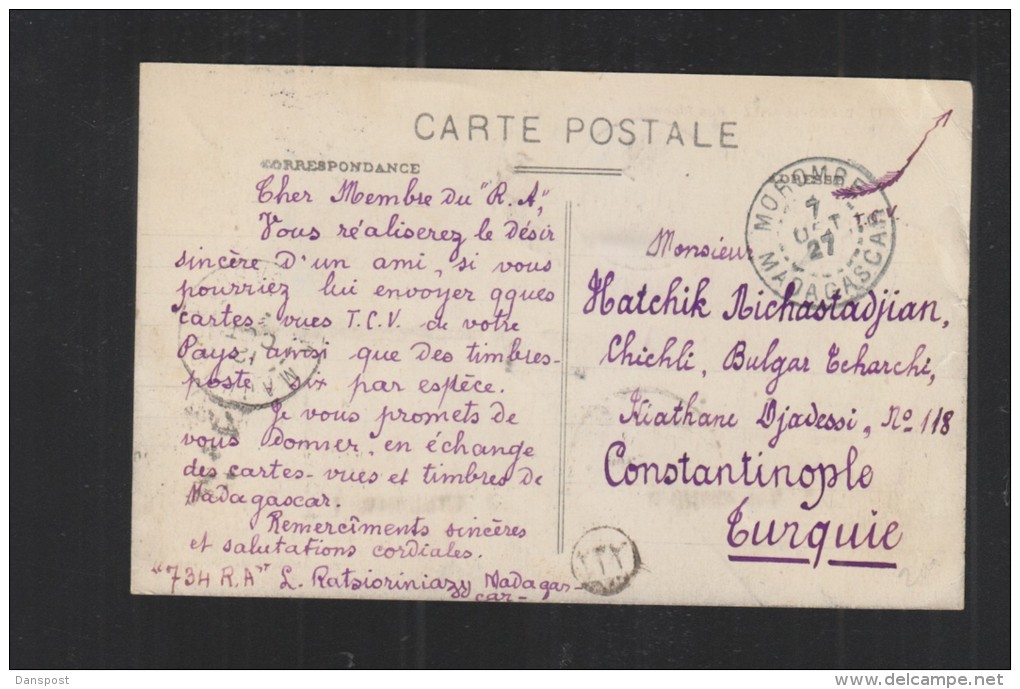 CARTE POSTALE
CORRESPONDANCE
Cher Membre du "R.A",
Vous réaliserez le désir
sincère d'un ami, si vous
pourriez lui envoyer qques
cartes vues T.C.V. de votre
Pays ainsi que des timbres-
poste six par espèce.
Je vous promets de
vous donner, en échange
des cartes-vues et timbres de
Madagascar.
Remercîments sincères
et salutations cordiales.
"734 R.A" L. Ratsioriniazy Madagas-
car-
MOROMBE
7
OCT
27
MADAGASCAR
T.C.V.
Monsieur
Hatchik Nichastadjian,
Chichli, Bulgar Tcharchi,
Kiathane Djadessi, No 118
Constantinople
Turquie
٢٣٢
Danspost
delcampe.net